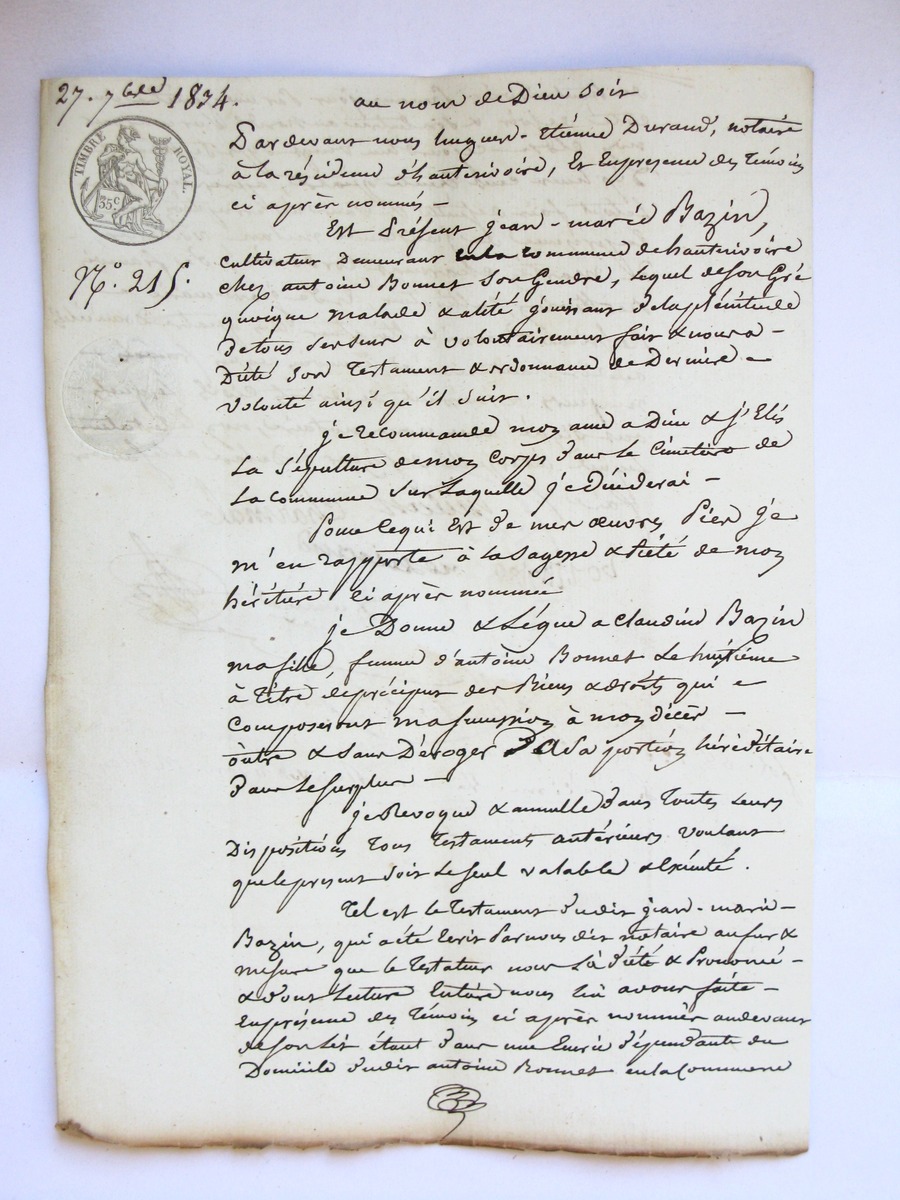 27. 7bre 1834.
au nom de Dieu soit
TIMBRE ROYAL.
35c
Pardevant nous hugues-Etienne Durand, notaire
à la résidence d'hauterivoire, Et Enpresence des Témoins
ci après nommés -
Est Présent jean-marie Bazin,
N.o 215.
Cultivateur Demeurant enla commune de hauterivoire
chez antoine Bonnet son Gendre, lequel de son Gré
quoique malade & alité jouissant de la plénitude
de tous ses sens à volontairement fait & nous a -
Dicté son Testament & ordonnance de Dernière
volonté ainsi qu'il suit.
je recommande mon ame a Dieu & j'Elis
La sépulture de mon corps dans le Cimetière de
La commune sur laquelle je décèderai -
Pour cequi Est de mes œuvres Pies je
m'en rapporte à la sagesse & Piété de mon
héritière ci après nommée
je Donne & Lègue a Claudine Bazin
ma fille, femme d'antoine Bonnet le huitième
à titre de préciput des Biens & droits qui
Composeront ma succession à mon décès -
outre & sans Déroger a sa portion héréditaire
dans le surplus -
je Revoque & annulle dans Toutes leurs
Dispositions Tous Testaments antérieurs voulant
que le present soit le seul valable & Exécuté.
Tel est le Testament dudit jean-marie -
Bazin, qui a été Ecrit Par nous dit notaire au fur &
mesure que le Testateur nous l'a dicté & Prononcé -
& dont Lecture Entière nous lui avons faite -
Enprésence des Témoins ci après nommés audevant
de son Lit étant dans une Ecurie dépendante du
Domicile dudit antoine Bonnet en la Commune